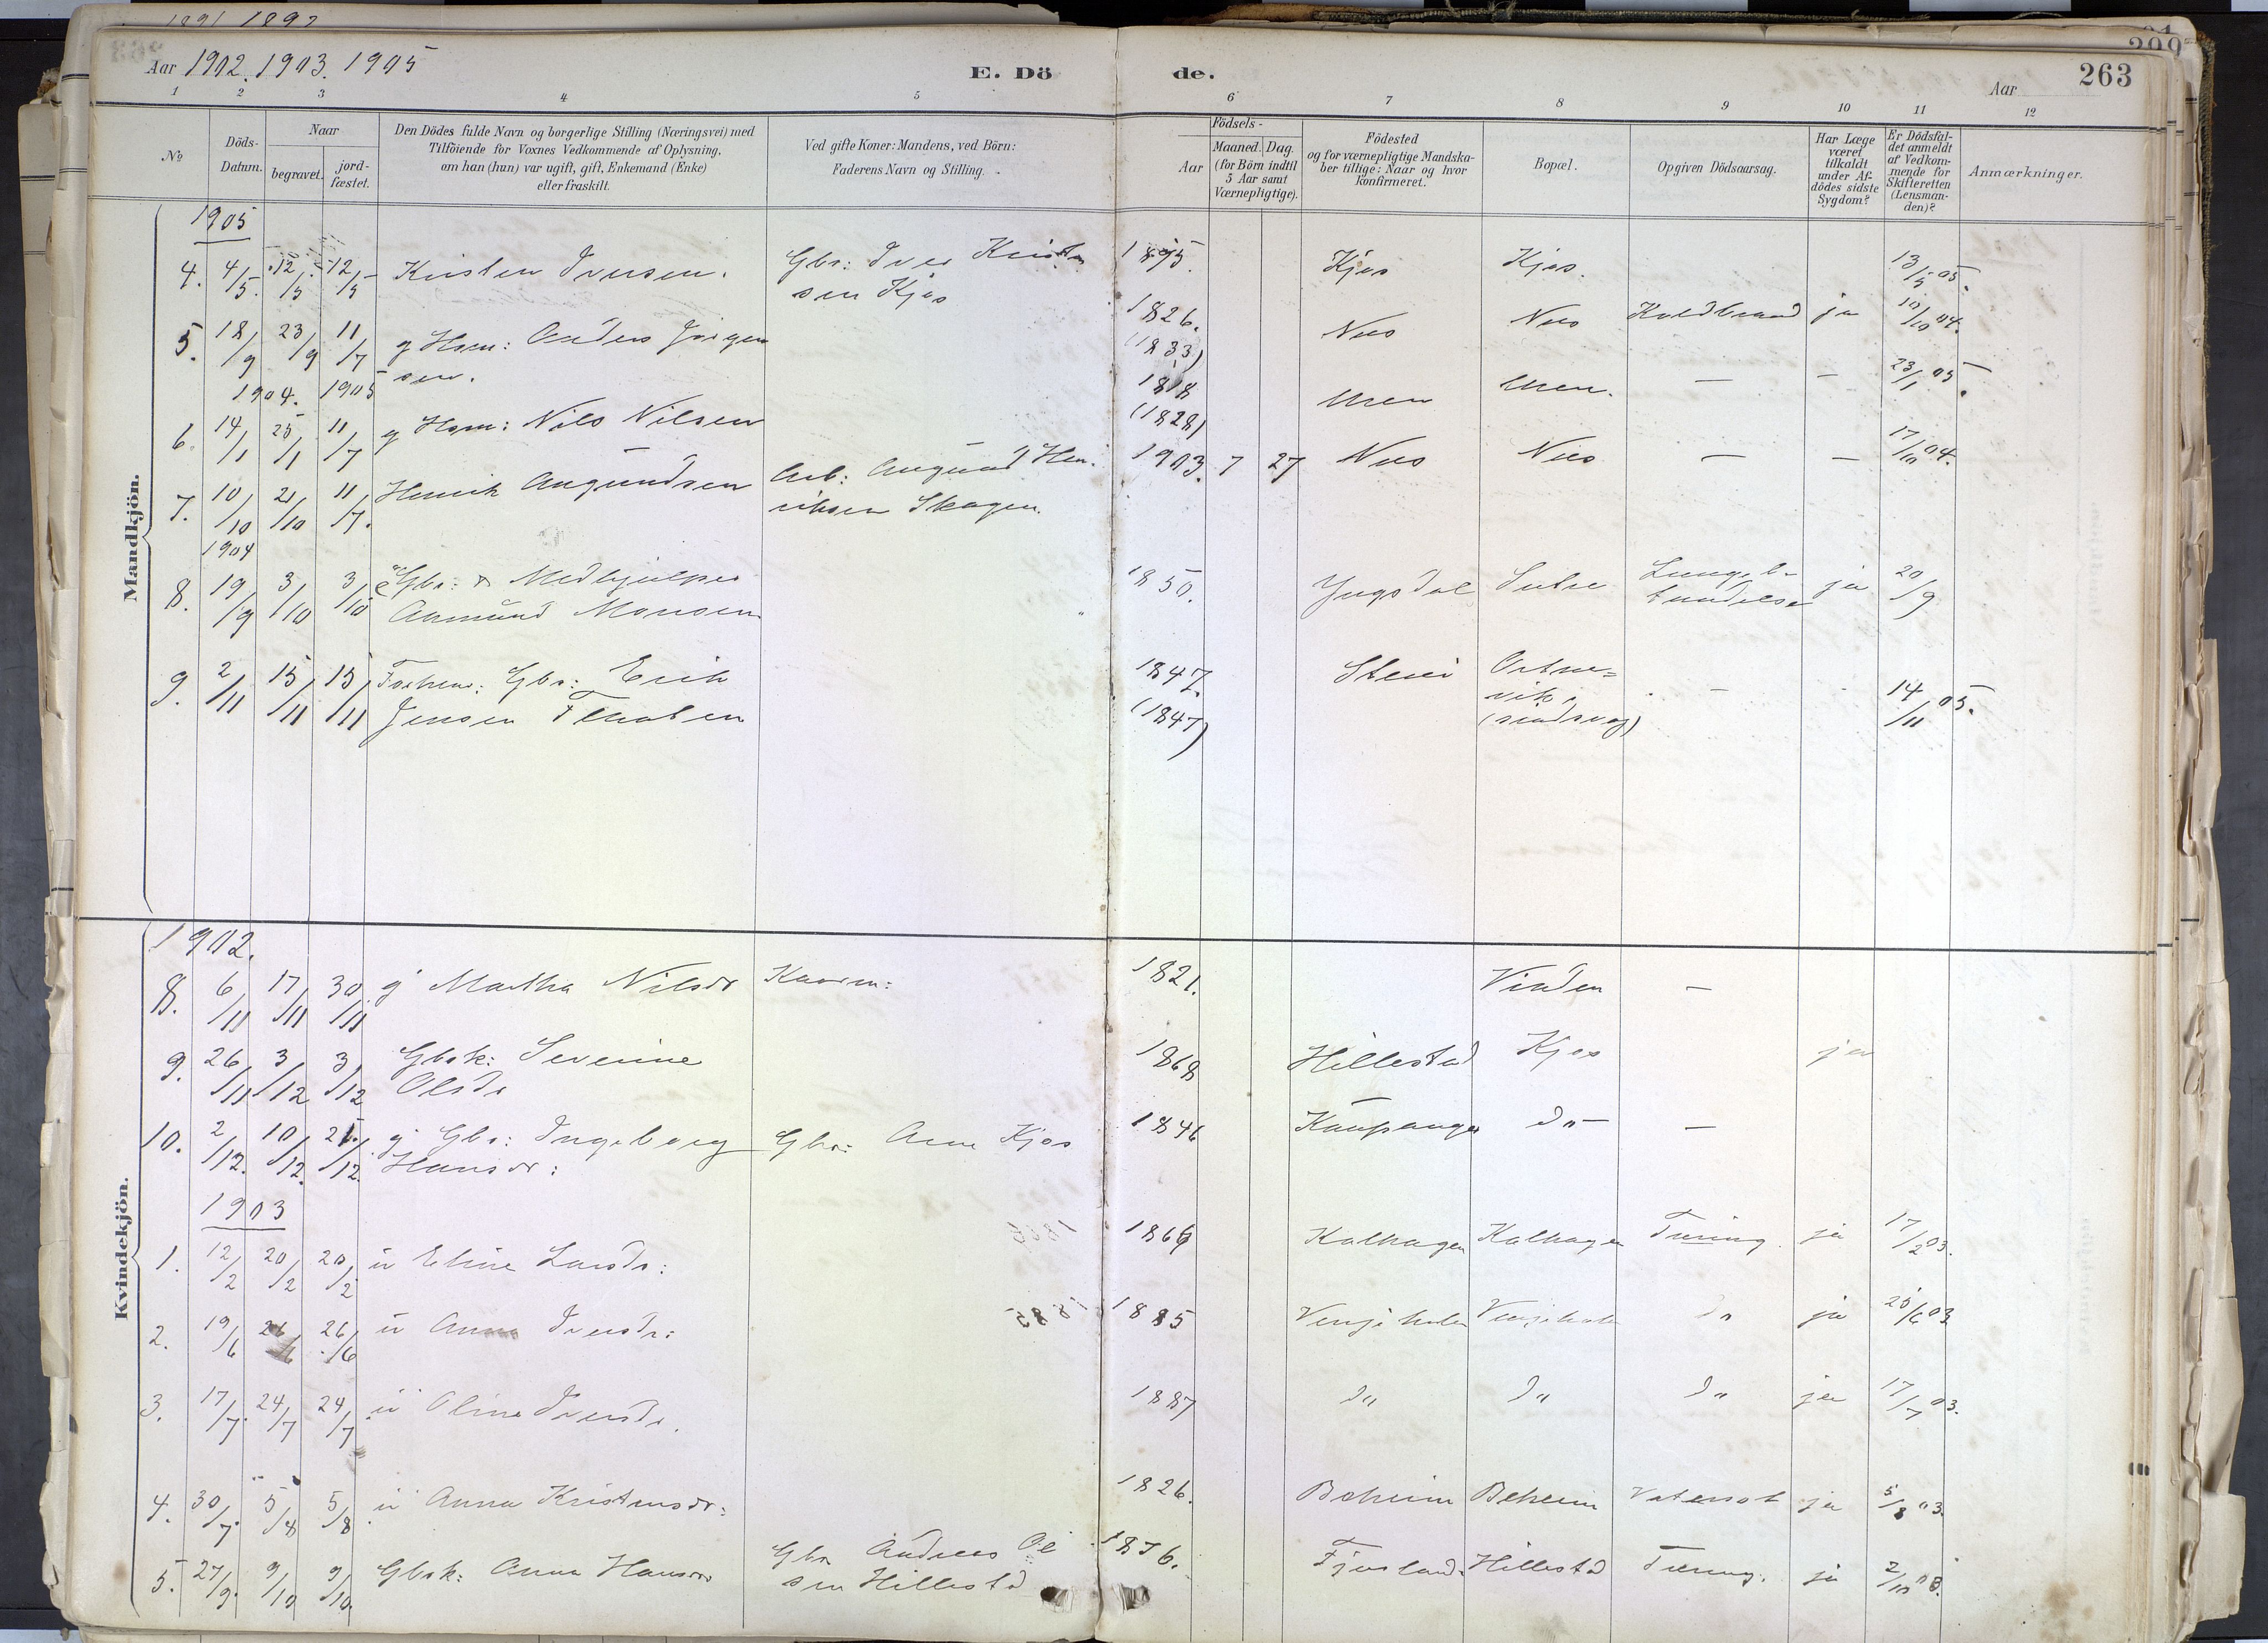 1891 1892
Aar 1902. 1903. 1905
E. Dö de.
Aar
263
1 2 3 4 5 6 7 8 9 10 11 12
No
Döds-Datum.
Naar
begravet.
jord-fæstet.
Den Dödes fulde Navn og borgerlige Stilling (Næringsvei) med
Tilföiende for Voxnes Vedkommende af Oplysning,
om han (hun) var ugift, gift, Enkemand (Enke)
eller fraskilt.
Ved gifte Koner: Mandens, ved Börn:
Faderens Navn og Stilling.
Födsels-
Aar
Maaned. Dag.
(for Börn indtil
5 Aar samt
Værnepligtige).
Födested
og for værnepligtige Mandska-
ber tillige: Naar og hvor
konfirmeret.
Bopæl.
Opgiven Dödsaarsag.
Har Læge
været
tilkaldt
under Af-
dödes sidste
Sygdom?
Er Dödsfal-
det anmeldt
af Vedkom-
mende for
Skifteretten
(Lensman-
den)?
Anmærkninger.
Mandkjön.
1905
4. 4/5. 12/5 12/5 Kristen Iversen. Gbr: Iver Kristen 1895. Kjøs Kjøs. 13/5 05.
sen Kjøs
5. 18/9 23/9 11/7 g Hsm: Anders Jørgen 1826. Nes Nes Koldbrand ja 10/10 04.
sen. (1833)
1904. 1905
6. 14/1 25/1 11/7 g Hsm: Nils Nilsen 1818 Uren Uren. — — 23/1 05.
(1828)
7. 10/10 21/10 11/7. Henrik Augundsen Arb: Augund Hen- 1903. 7 27 Nes Nes — — 17/10 04.
riksen Skagen.
1904
8. 19/9 3/10 3/10 Gbr: & Medhjelper 1850. Yngsdal Sætre Lungeb- ja 20/9
Aamund Monsen tændelse
9. 2/11 15/11 15/11 Forhenv: Gbr: Erik 1847. Steie Ortne- — 14/11 05.
Jensen (1847) vik,
Kvindekjön.
1902.
8. 6/11 17/11 30/11 g Martha Nilsdr Kaarm: 1821. Vinden —
9. 26/11 3/12 3/12 Gbrk: Severine 1868 Hillestad Kjøs ja
Olsdr
10. 2/12. 10/12. 21/12. g Gbr: Ingeborg Gbr: Arne Kjøs 1846 Kaupanger do —
Hansdr:
1903
1. 12/2 20/2 20/2 u Eline Larsdr: 1866 Kalhagen Kalhagen Tæring. ja 17/2 03.
2. 19/6 26/6 26/6 u Anna Iversdr: 1885 Vengeholen Vengeholen do ja 25/6 03
3. 17/7. 24/7 24/7 u Oline Iversdr. 1887 do do do ja 17/7 03.
4. 30/7. 5/8 5/8 u Anna Kristensdr: 1826. Boheim Boheim Vatersot ja 5/8 03.
5. 27/9. 9/10 9/10. Gbrk: Anna Hansdr Gbr Andreas Ol 1876. Fjærland. Hillestd Tæring. ja 2/10 03.
sen Hillestd